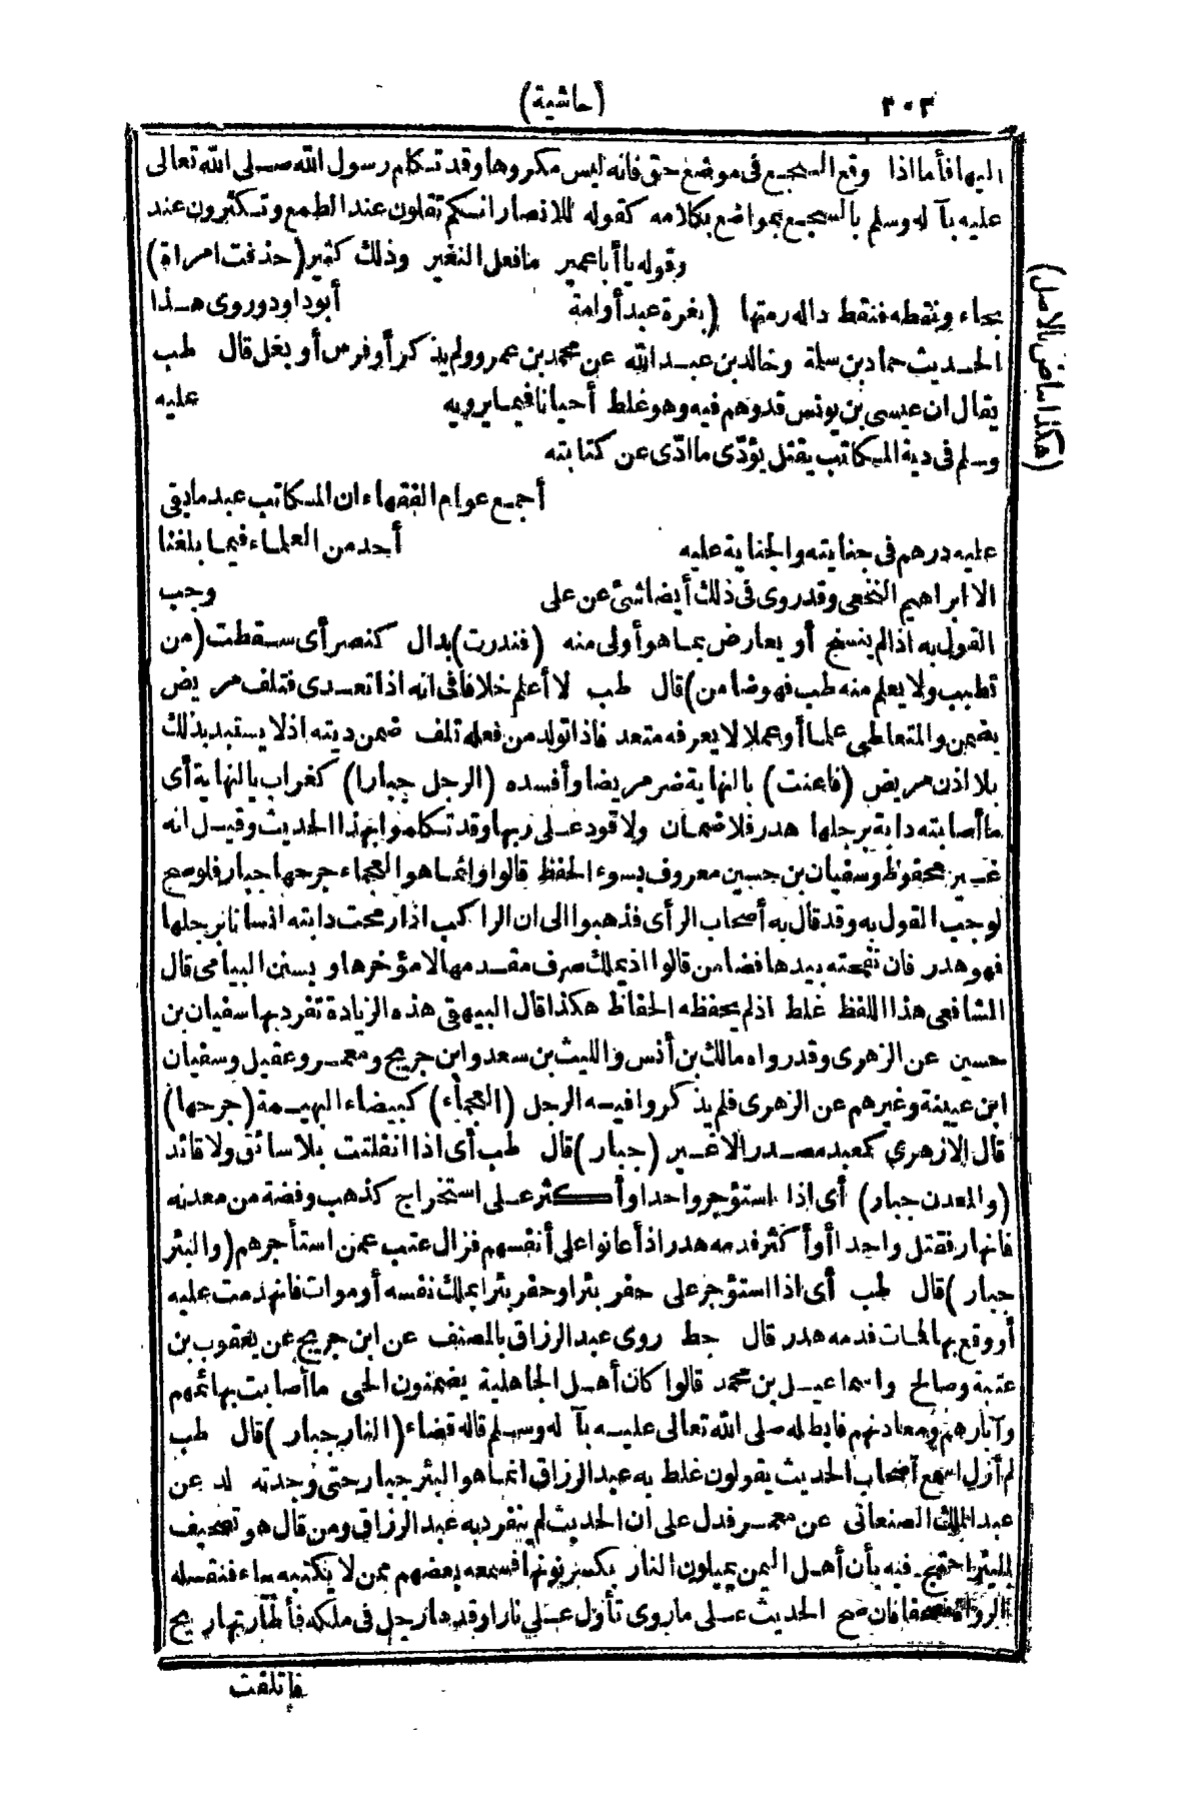 ٢٠٢
(حاشية)
اليها فأما اذا وقع السجع فى موضع حق فانه ليس مكروها وقد تكلم رسول الله صلى الله تعالى
عليه بآله وسلم بالسجع بمواضع بكلامه كقوله للانصار انكم تقلون عند الطمع وتكثرون عند
وقوله يا أبا عمير ما فعل النغير وذلك كثير (حذفت امرأة)
بحاء ونقطه فنقط داله رمتها (بغرة عبد أو امة أبو داود وروى هذا
الحديث حماد بن سلمة وخالد بن عبد الله عن محمد بن عمرو ولم يذكر أو فرس أو بغل قال طب
يقال ان عيسى بن يونس قد وهم فيه وهو غلط أحيانا فيما يرويه عليه
وسلم فى دية المكاتب يقتل يؤدّى ما ادّى عن كتابته
أجمع عوام الفقهاء ان المكاتب عبد ما بقى
عليه درهم فى جنايته والجناية عليه أحد من العلماء فيما بلغنا
الا ابراهيم النخعى وقد روى فى ذلك أيضا شئ عن على وجب
القول به اذا لم ينسخ أو يعارض بما هو أولى منه (فندرت) بدال كنصر أى سقطت (من
تطبب ولا يعلم منه طب فهو ضامن) قال طب لا أعلم خلافا فى انه اذا تعدى فتلف مريض
يضمن والمتعاطى علما أو عملا لا يعرفه متعد فاذا تولد من فعله تلف ضمن ديته اذ لا يستبد بذلك
بلا اذن مريض (فاعنت) بالنهاية ضر مريضا وأفسده (الرجل جبارا) كغراب بالنهاية أى
ما أصابته دابة برجلها هدر فلا ضمان ولا قود على ربها وقد تكلموا بهذا الحديث وقيل انه
غير محفوظ وسفيان بن حسين معروف بسوء الحفظ قالوا وانما هو العجماء جرحها جبار فلو صح
لوجب القول به وقد قال به أصحاب الرأى فذهبوا الى ان الراكب اذا رمحت دابته انسانا برجلها
فهو هدر فان نفحته بيدها فضامن قالوا اذ يملك صرف مقدمها لا مؤخرها و بسنن البيامى قال
الشافعى هذا اللفظ غلط اذ لم يحفظه الحفاظ هكذا قال البيهقى هذه الزيادة تفرد بها سفيان بن
حسين عن الزهرى وقد رواه مالك بن أنس والليث بن سعد وابن جريج ومعمر وعقيل وسفيان
ابن عيينة وغيرهم عن الزهرى فلم يذكروا فيه الرجل (العجماء) كبيضاء البهيمة (جرحها)
قال الازهري كعبد مصدر الاغير (جبار) قال طب أى اذا انفلتت بلا سائق ولا قائد
(والمعدن جبار) أى اذا استؤجر واحد أو أكثر على استخراج كذهب وفضة من معدنه
فانهار فقتل واحدا أو أكثر فدمه هدر اذ أعانوا على أنفسهم فزال عتب عمن استأجرهم (والبئر
جبار) قال طب أى اذا استؤجر على حفر بئر او حفر بئرا بملك نفسه أو موات فانهدمت عليه
أو وقع بها لحات فدمه هدر قال حط روى عبد الرزاق بالمصنف عن ابن جريج عن يعقوب بن
عتبة وصالح واسماعيل بن محمد قالوا كان أهل الجاهلية يضمنون الحى ما أصابت بهائمهم
وآبارهم ومعادنهم فابطله صلى الله تعالى عليه بآله وسلم قاله قضاء (النار جبار) قال طب
لم أزل اسمع أصحاب الحديث يقولون غلط به عبد الرزاق انما هو البئر جبار حتى وجدته لد عن
عبد الملك الصنعانى عن معمر فدل على ان الحديث لم ينفرد به عبد الرزاق ومن قال هو تصحيف
للبئر احتج فيه بأن أهل اليمن يميلون النار بكسر نونها فسمعه بعضهم ممن لا يكتبه بياء فنقله
الرواة مصحفا فان صح الحديث على ما روى تأول على نار اوقدها رجل فى ملكه فأطارتها ريح
فاتلفت
(هكذا بياض بالاصل)